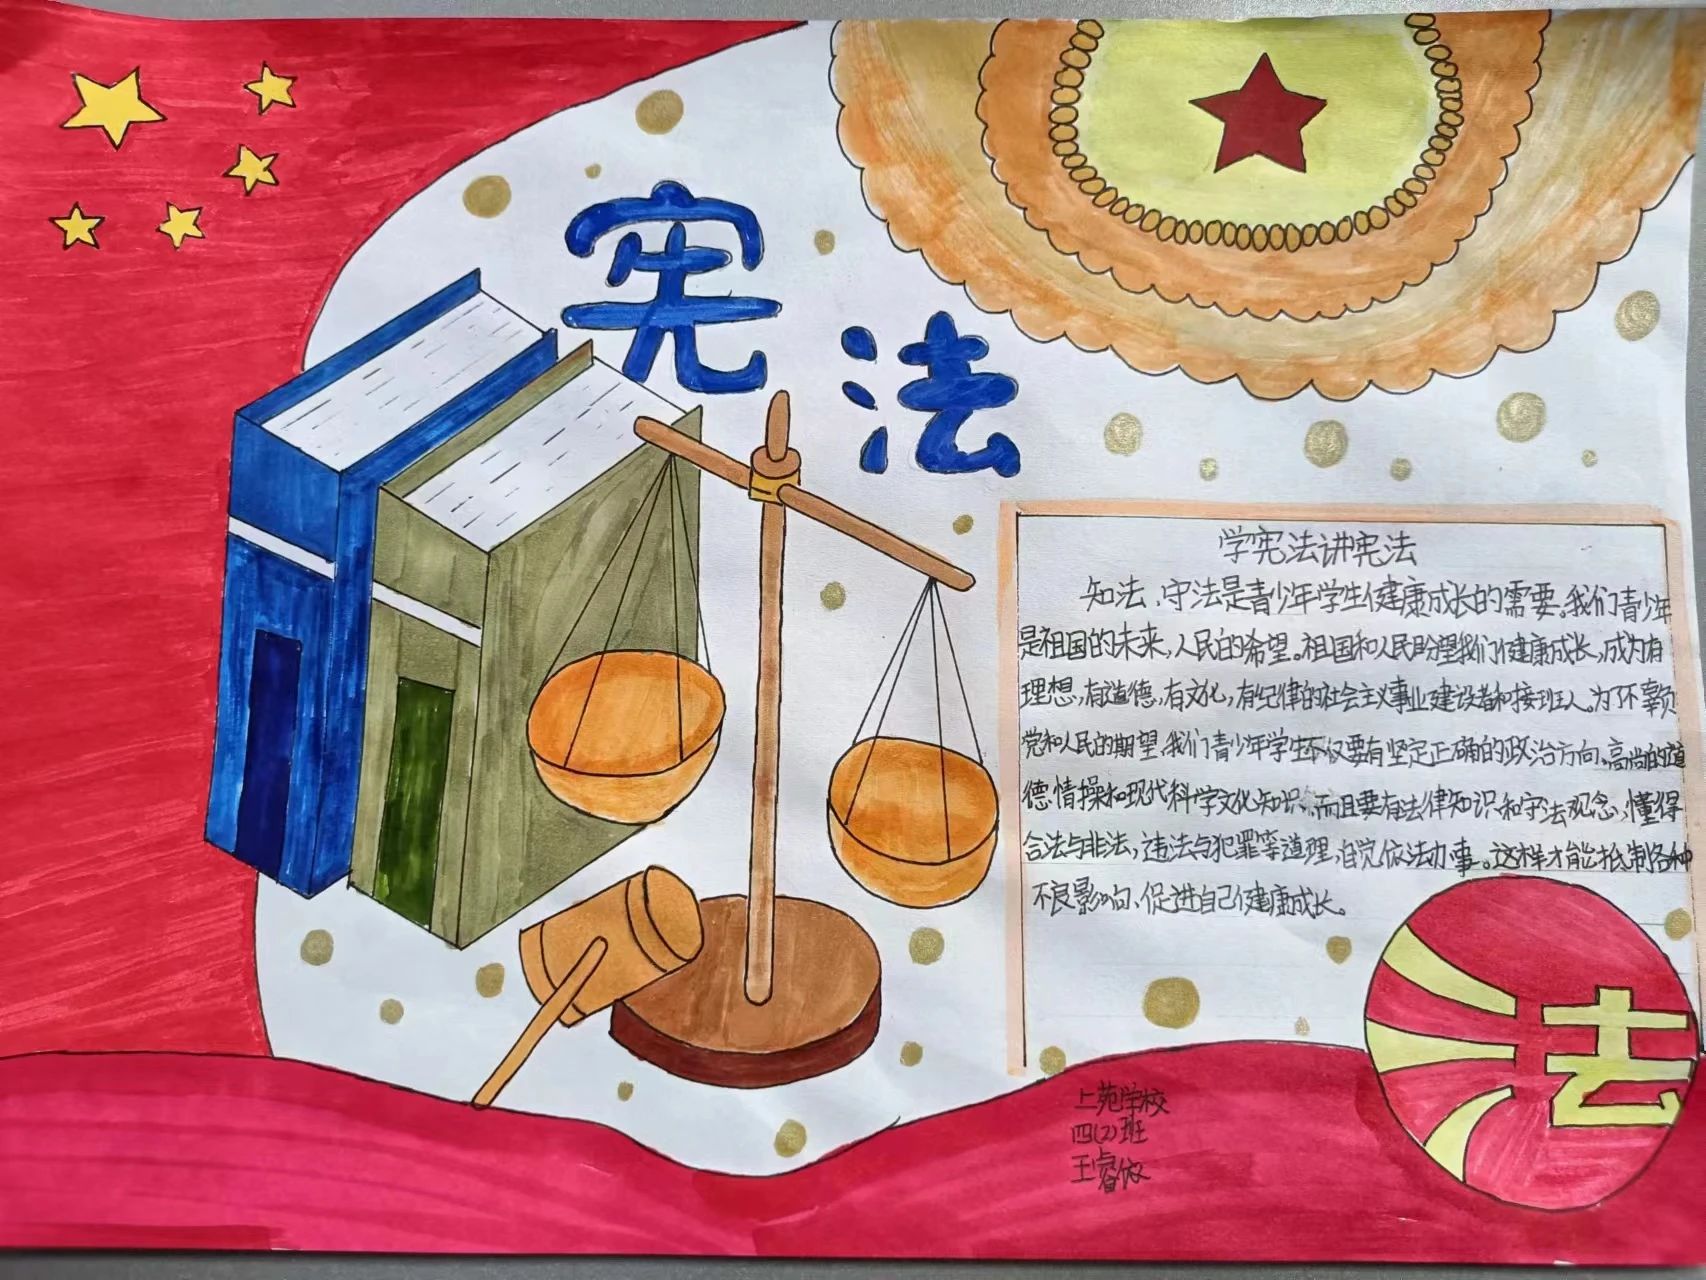 宪法
学宪法讲宪法
知法、守法是青少年学生健康成长的需要。我们青少年
是祖国的未来,人民的希望。祖国和人民盼望我们健康成长,成为有
理想,有道德,有文化,有纪律的社会主义事业建设者和接班人。为不辜负
党和人民的期望,我们青少年学生不仅要有坚定正确的政治方向、高尚的道
德情操和现代科学文化知识,而且要有法律知识和守法观念,懂得
合法与非法,违法与犯罪等道理,自觉依法办事。这样才能抵制各种
不良影响,促进自己健康成长。
法
上苑学校
四(2)班
王睿依